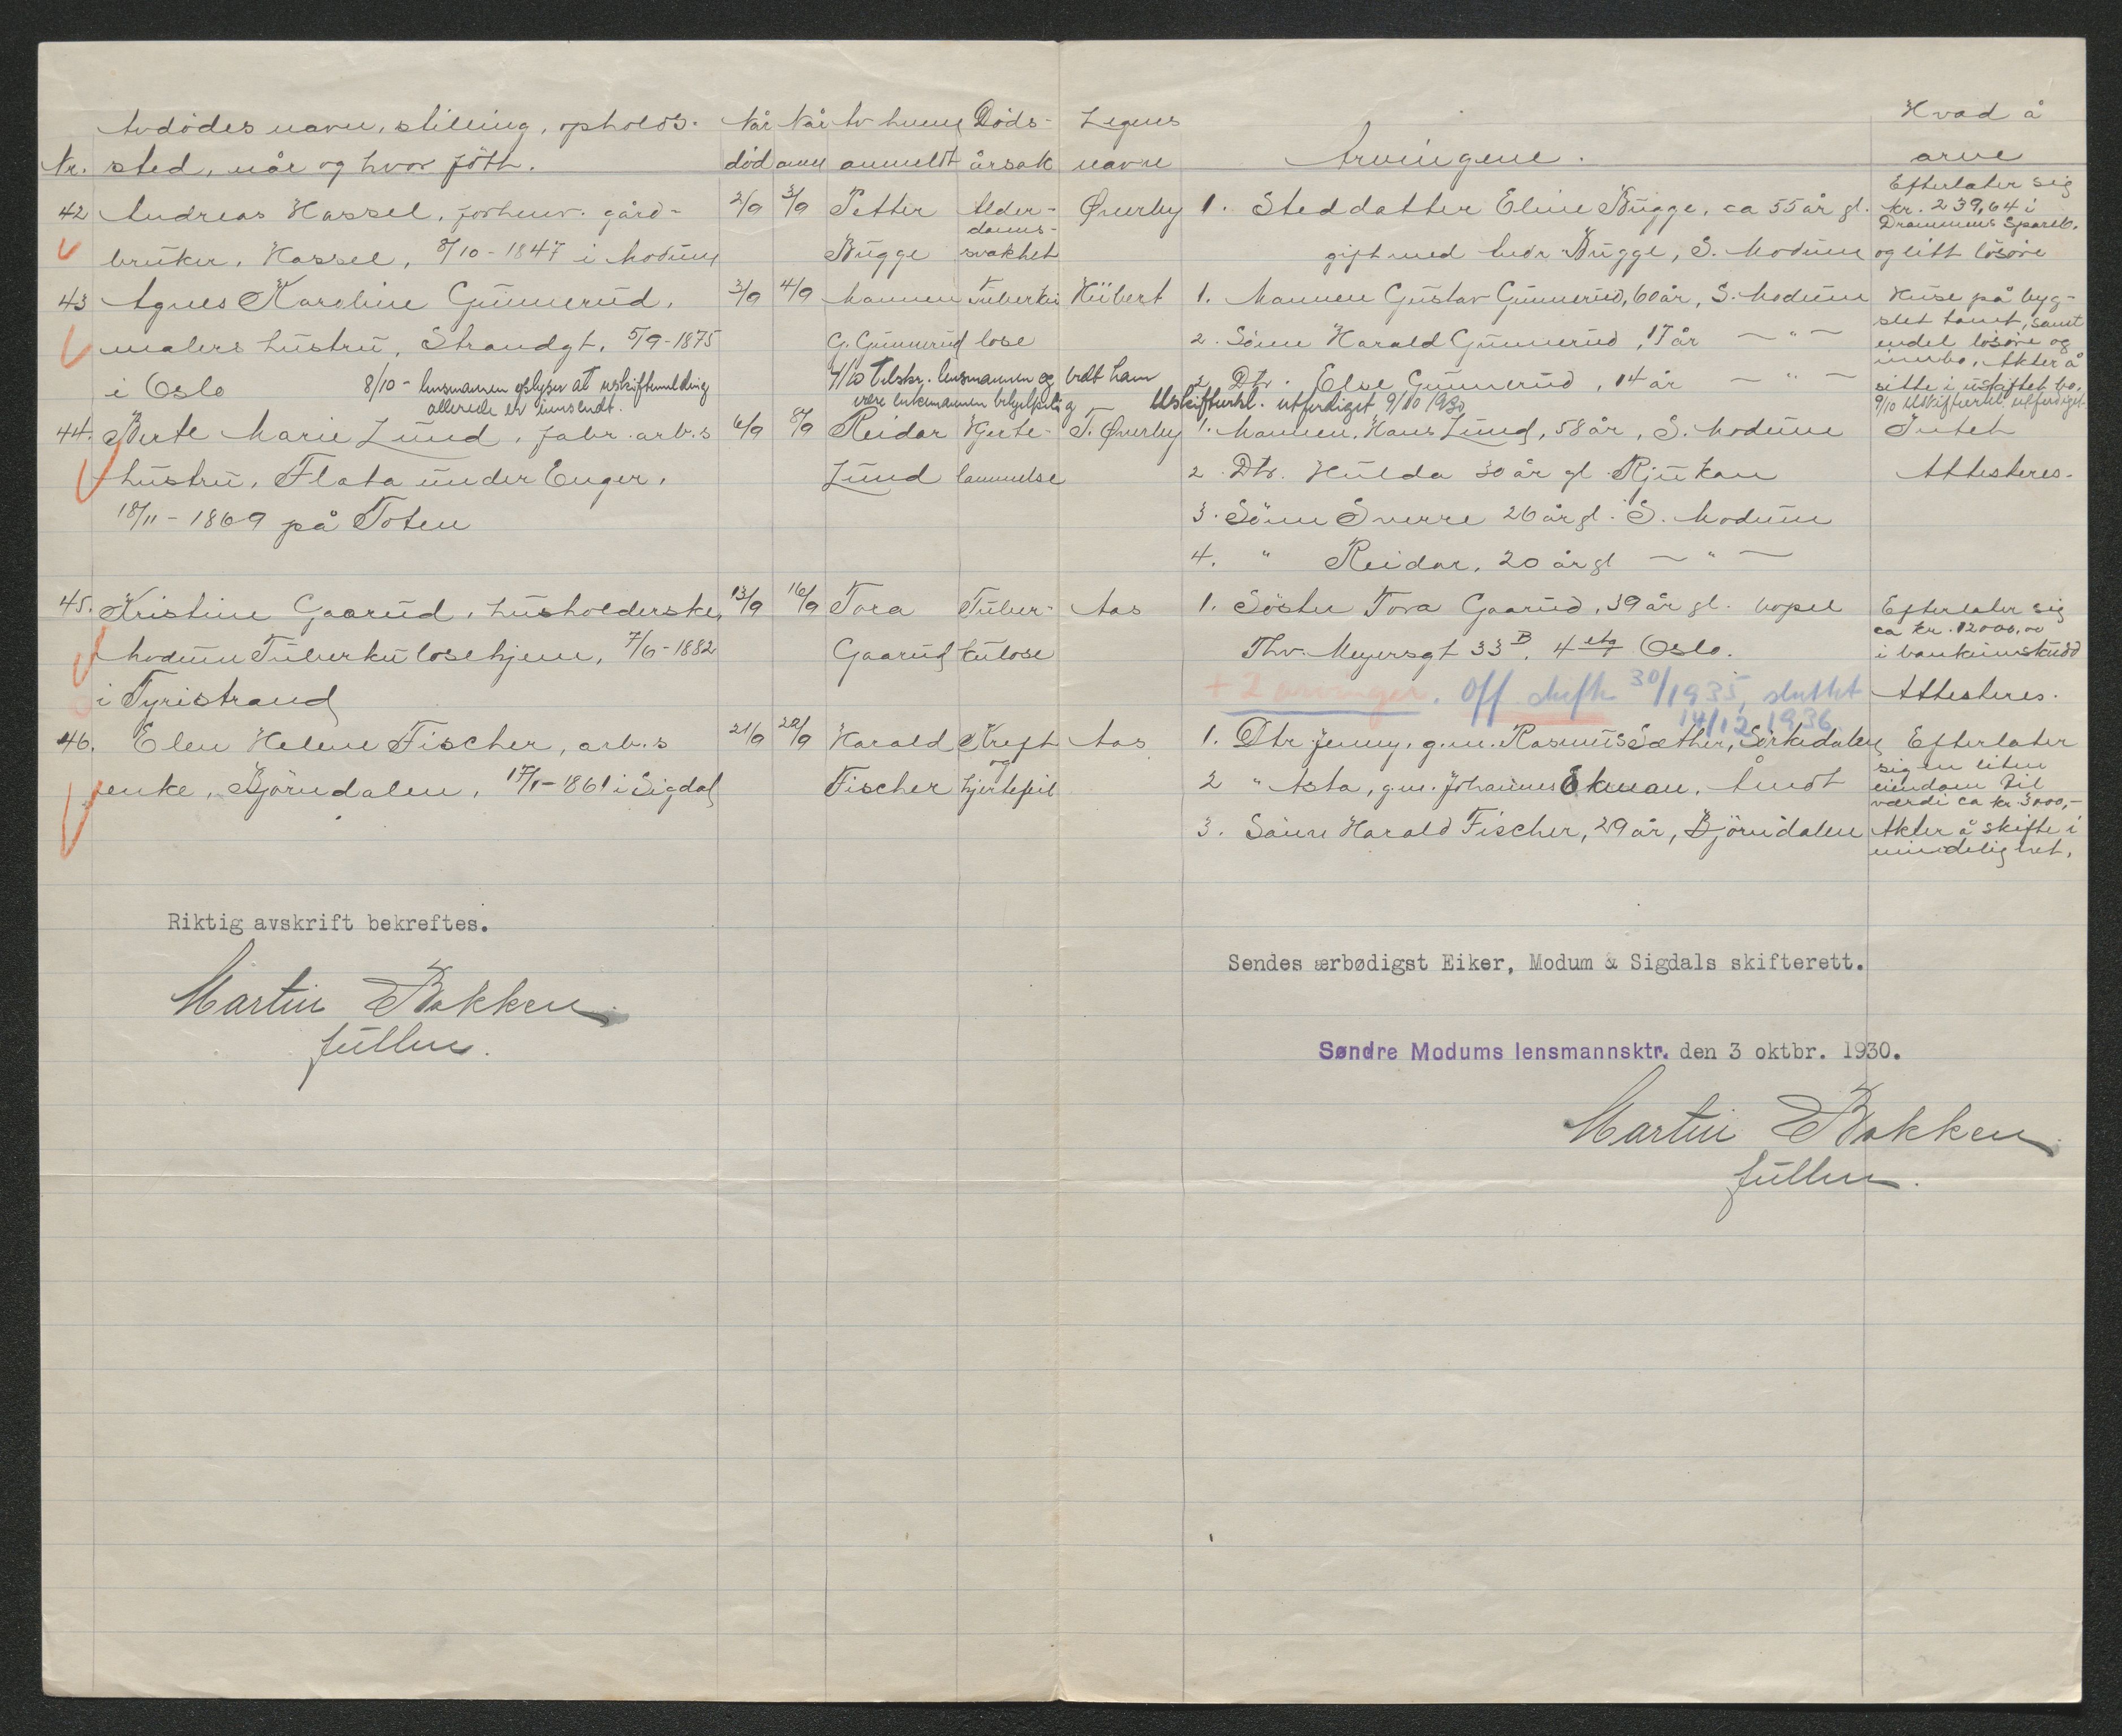 Avdødes navn, stilling, opholds-
Nr. sted, når og hvor fött.
Når død
Når anm
Av hvem anmeldt
Döds-årsak
Legens navn
Arvingene.
Hvad å arve
42 Andreas Hassel, forhenv. gård-
bruker, Hassel, 8/10-1847 i Modum
2/9 3/9 Petter Bugge
Alder-
doms-
svakhet
Øverby
1. Steddatter Eline Bugge, ca 55 år gl.
gift med Bugge, S. Modum
Efterlater sig
kr. 239,64 i
Drammens Spareb.
og litt lösöre
43 Agnes Karoline Gunnerud,
malers hustru, Strandgt. 5/9-1875
i Oslo
8/10 - lensmannen oplyser at uskiftemelding
allerede er innsendt.
3/9 4/9 Mannen
G. Gunnerud
Tuberku
lose
Hübert
4/10 tilskr. lensmannen og bedt ham
være enkemannen behjelpelig
Uskifteerkl. utferdiget 9/10 1930
1. Mannen Gustav Gunnerud, 60 år, S. Modum
2. Sönn Harald Gunnerud, 17 år — " —
2. Dtr. Else Gunnerud, 14 år — " —
Huse på byg-
slet tomt, samt
endel lösöre og
innbo. Akter å
sitte i uskiftet bo.
9/10 Uskifteerkl. utferdiget.
44. Berte Marie Lund, fabr. arb.s
hustru, Flata under Enger,
18/11-1869 på Toten
6/9 8/9 Reidar
Lund
Hjerte-
lammelse
T. Øverby
1. Mannen, Hans Lund, 58 år, S. Modum
2. Dtr. Hulda 30 år gl. Rjukan
3. Sönn Sverre 26 år gl. S. Modum
4. " Reidar, 20 år gl — " —
Intet
Attesteres.
45. Kristine Gaarud, husholderske,
Modum Tuberkulosehjem, 7/6-1882
i Tyristrand
13/9 16/9 Tora
Gaarud
Tuber-
kulose
Aas
1. Söster Tora Gaarud, 39 år gl. bopel
Thv. Meyersgt 33 B, 4 etg Oslo.
+ 2 arvinger. Off skifte 30/1 1935, sluttet
14/12 1936
Efterlater sig
ca kr. 12000,00
i bankinnskudd
Attesteres.
46. Elen Helene Fischer, arb.s
enke, Björndalen, 17/1-1861 i Sigdal
21/9 29/9 Harald
Fischer
Kreft
og
hjertefeil
Aas
1. Dtr Jenny, g.m. Rasmus Sæther, Sörkedalen
2 " Asta, g.m. Johannes Ekman, Åmot
3. Sönn Harald Fischer, 29 år, Björndalen
Efterlater
sig en liten
eiendom til
værdi ca kr. 3000,-
Akter å skifte i
mindelighet.
Riktig avskrift bekreftes.
Martin Bakken
fullm.
Sendes ærbødigst Eiker, Modum & Sigdals skifterett.
Søndre Modums lensmannsktr. den 3 oktbr. 1930.
Martin Bakken
fullm.